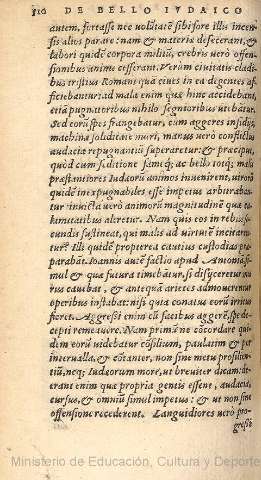 510 DE BELLO IVDAICO
autem, fortasse nec volũtatẽ sibi fore illis incen-
sis alios parare: nam & materia defecerant, &
labori quidẽ corpora militũ, crebris verò offen-
sionibus animæ cesserant. Verùm ciuitatis cladi-
bus tristitia Romanis quã ciues in ea degentes af-
ficiebantur: ad mala enim eis hinc accidebat,
etiã pugnatoribus nihilo segnioribus vtebãtur.
Sed eorũ spes frãgebatur, cum aggeres insidijs,
machinæ soliditate muri, manus verò conflictus
audacia repugnantiũ superaretur: & præcipuè
quòd cum seditione fameq; ac bello totq; malis
præstantiores Iudæorũ animos inuenirent, virorũ
quidẽ inexpugnabiles esse impetus arbitraban-
tur inuicta verò animorũ magnitudinẽ quæ ca-
lamitatibus aleretur. Nam quis eos in rebus se-
cundis sustineat, qui malis ad virtutẽ incitaren-
tur. Illi quidẽ propterea cautius custodias præ-
parabãt. Ioannis autẽ factio apud Antoniã si-
mul & quæ futura timebãtur, si disijceretur mu-
rus cauebat, & antequã arietes admouerentur
operibus instabat: nõ quia conatus eorũ irritus
fieret. Aggressi enim cũ facibus aggerẽ, spe de-
cepti remeauere. Nam primũ ne cõcordare qui-
dem eorũ videbatur cõsilium, paulatim & per
interualla, & cõtanter, non sine metu prosilien-
tiũ, neq; Iudæorum more, vt breuiter dicam: de-
erant enim quæ propria gentis essent, audacia,
cursus, & omniũ simul impetus: & vt non sine
offensione recederent. Languidiores verò pro-
gressi
Ministerio de Educación, Cultura y Deporte